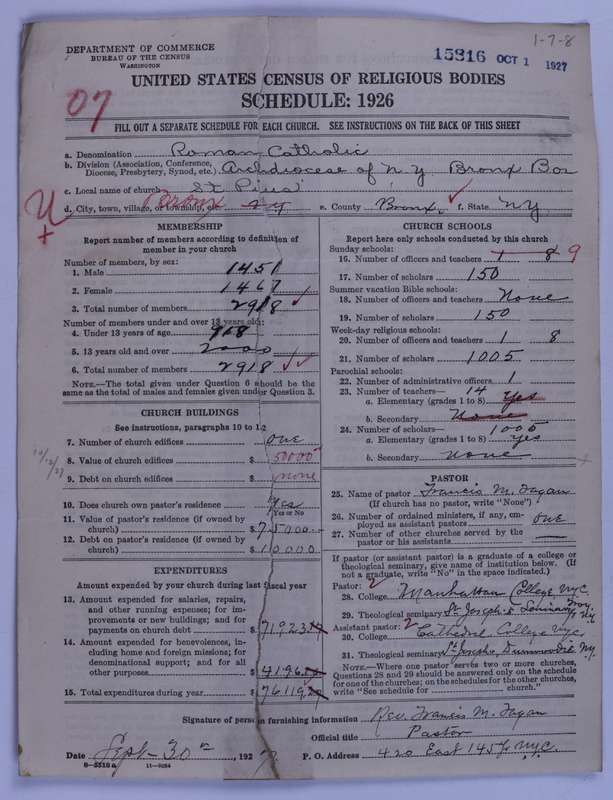 1-7-8
DEPARTMENT OF COMMERCE
BUREAU OF THE CENSUS
WASHINGTON
15816 OCT 1 1927
UNITED STATES CENSUS OF RELIGIOUS BODIES
SCHEDULE: 1926
07
FILL OUT A SEPARATE SCHEDULE FOR EACH CHURCH. SEE INSTRUCTIONS ON THE BACK OF THIS SHEET
a. Denomination Roman Catholic
b. Division (Association, Conference, Diocese, Presbytery, Synod, etc.) Archdiocese of N.Y. Bronx Bor
c. Local name of church St Pius'
d. City, town, village, or township, etc. Bronx NY e. County Bronx, f. State N.Y.
MEMBERSHIP
Report number of members according to definition of
member in your church
Number of members, by sex:
1. Male 1451
2. Female 1467
3. Total number of members 2918
Number of members under and over 13 years old:
4. Under 13 years of age 918
5. 13 years old and over 2000
6. Total number of members 2918
NOTE.—The total given under Question 6 should be the
same as the total of males and females given under Question 3.
CHURCH BUILDINGS
See instructions, paragraphs 10 to 12
7. Number of church edifices one
10/12/27
8. Value of church edifices $ 50000
9. Debt on church edifices $ none
10. Does church own pastor's residence? Yes
Yes or No
11. Value of pastor's residence (if owned by
church) $ 75000.-
12. Debt on pastor's residence (if owned by
church) $ 10000
EXPENDITURES
Amount expended by your church during last fiscal year
13. Amount expended for salaries, repairs,
and other running expenses; for im-
provements or new buildings; and for
payments on church debt $ 71923
14. Amount expended for benevolences, in-
cluding home and foreign missions; for
denominational support; and for all
other purposes $ 4196
15. Total expenditures during year $ 76119
CHURCH SCHOOLS
Report here only schools conducted by this church
Sunday schools:
16. Number of officers and teachers 1 8 9
17. Number of scholars 150
Summer vacation Bible schools:
18. Number of officers and teachers None
19. Number of scholars 150
Week-day religious schools:
20. Number of officers and teachers 1 8
21. Number of scholars 1005
Parochial schools:
22. Number of administrative officers 1
23. Number of teachers— 14
a. Elementary (grades 1 to 8) yes
b. Secondary None
24. Number of scholars— 1005
a. Elementary (grades 1 to 8) yes
b. Secondary none
PASTOR
25. Name of pastor Francis M. Fagan
(If church has no pastor, write "None")
26. Number of ordained ministers, if any, em-
ployed as assistant pastors one
27. Number of other churches served by the
pastor or his assistants
If pastor (or assistant pastor) is a graduate of a college or
theological seminary, give name of institution below. (If
not a graduate, write "No" in the space indicated.)
Pastor: 2
28. College Manhattan College, NYC.
29. Theological seminary St Joseph's Seminary N.Y.
Assistant pastor: 2
30. College Cathedral College NYC.
31. Theological seminary St Josephs, Dunwoodie, N.Y.
NOTE.—Where one pastor serves two or more churches,
Questions 28 and 29 should be answered only on the schedule
for one of the churches; on the schedules for the other churches,
write "See schedule for ______ church."
Signature of person furnishing information Rev. Francis M. Fagan
Official title Pastor
Date Sept 30th, 1927 P. O. Address 420 East 145 St NYC.
8-5518a 11-9084